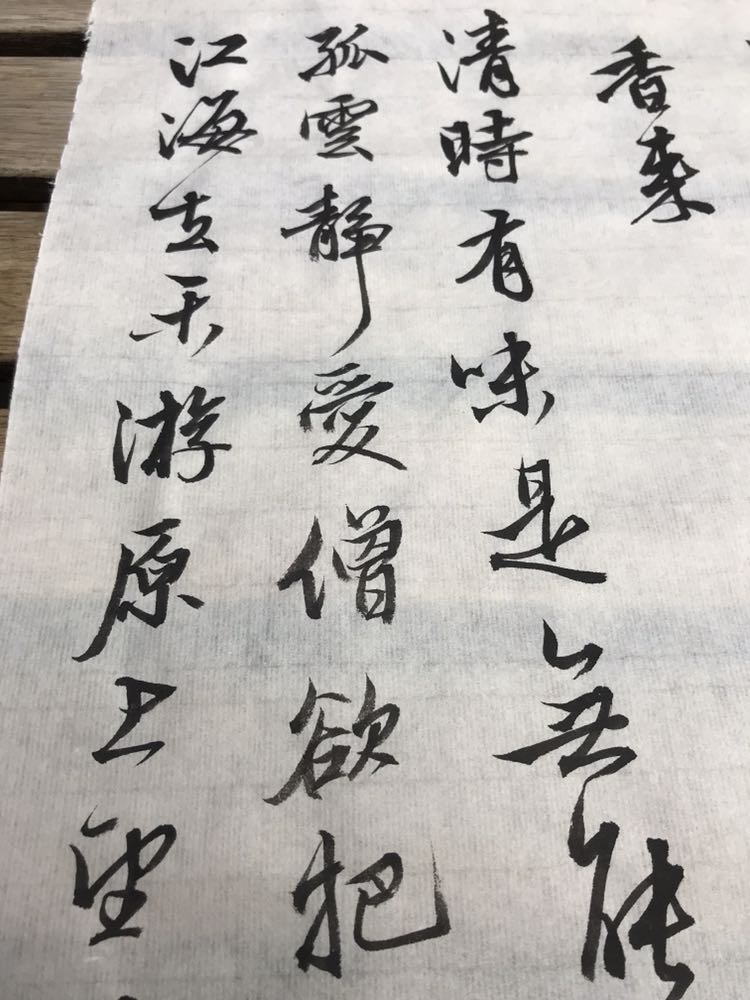 香来
清時有味是無能
孤雲靜愛僧欲把
江海去乐游原上望